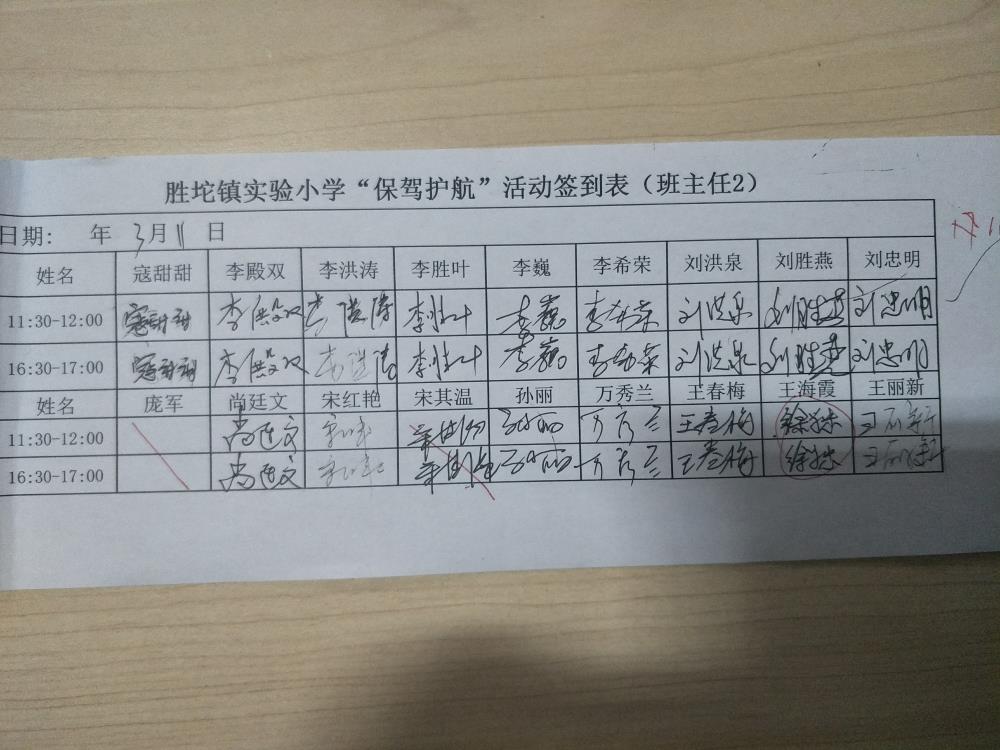 胜坨镇实验小学“保驾护航”活动签到表（班主任2）
日期: 年 3月11日
姓名 寇甜甜 李殿双 李洪涛 李胜叶 李巍 李希荣 刘洪泉 刘胜燕 刘忠明
11:30-12:00 寇甜甜 李殿双 李洪涛 李胜叶 李巍 李希荣 刘洪泉 刘胜燕 刘忠明
16:30-17:00 寇甜甜 李殿双 李洪涛 李胜叶 李巍 李希荣 刘洪泉 刘胜燕 刘忠明
姓名 庞军 尚廷文 宋红艳 宋其温 孙丽 万秀兰 王春梅 王海霞 王丽新
11:30-12:00 尚廷文 孙丽 万秀兰 王春梅 王丽新
16:30-17:00 尚廷文 孙丽 万秀兰 王春梅 王丽新